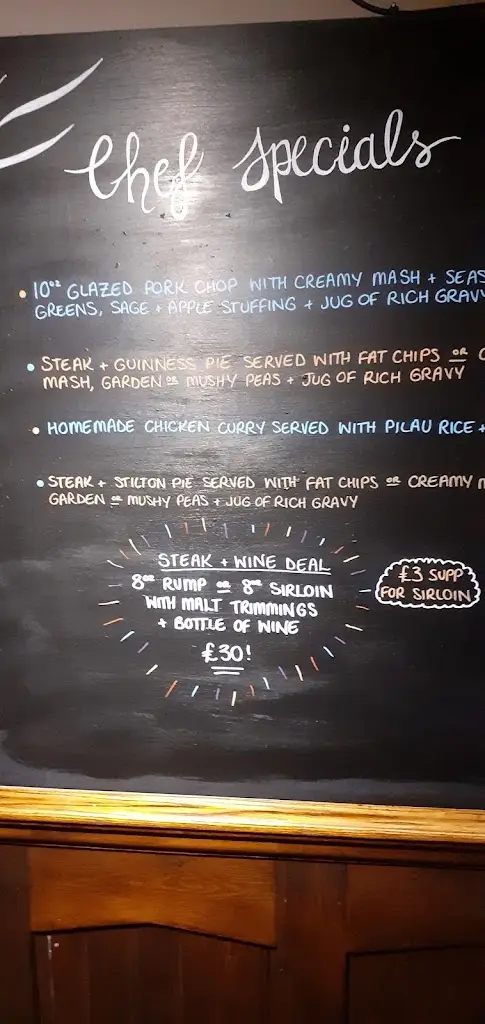 Chef Specials
10oz GLAZED PORK CHOP WITH CREAMY MASH +
GREENS, SAGE + APPLE STUFFING + JUG OF RICH GRAVY
STEAK + GUINNESS PIE SERVED WITH FAT CHIPS OR
MASH, GARDEN OR MUSHY PEAS + JUG OF RICH GRAVY
HOMEMADE CHICKEN CURRY SERVED WITH PILAU RICE +
STEAK + STILTON PIE SERVED WITH FAT CHIPS OR CREAMY
GARDEN OR MUSHY PEAS + JUG OF RICH GRAVY
STEAK + WINE DEAL
8oz RUMP OR 8oz SIRLOIN
WITH MALT TRIMMINGS
+ BOTTLE OF WINE
£30!
£3 SUPP
FOR SIRLOIN